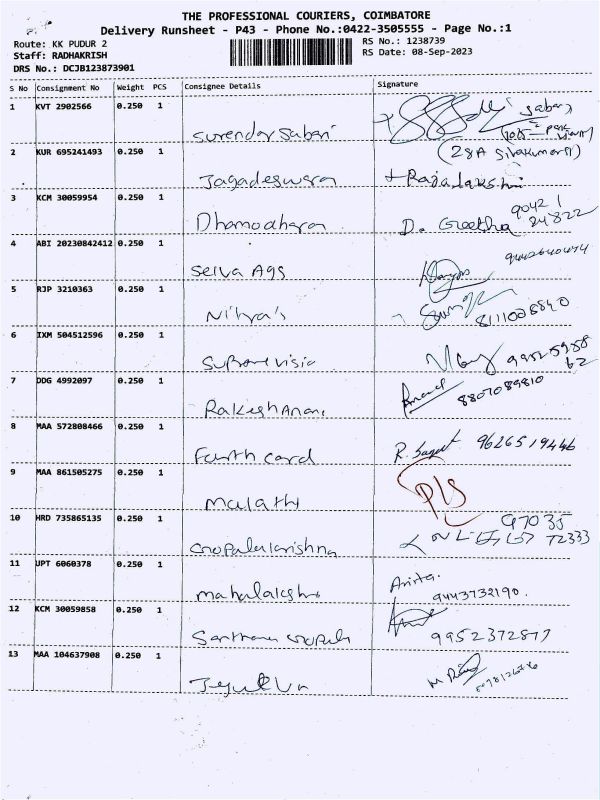 THE PROFESSIONAL COURIERS, COIMBATORE
Delivery Runsheet - P43 - Phone No.:0422-3505555 - Page No.:1
Route: KK PUDUR 2
RS No.: 1238739
Staff: RADHAKRISH
RS Date: 08-Sep-2023
DRS No.: DCJB123873901
S No Consignment No Weight PCS Consignee Details Signature
1 KVT 2902566 0.250 1 Surendar Sabari Sabari
2 KUR 695241493 0.250 1 Jagadeswaran (28A Sivakumar) Rajalakshmi
3 KCM 30059954 0.250 1 Dhamodharan D. Geetha 90421 84822
4 ABI 20230842412 0.250 1 Selva Ags
5 RJP 3210363 0.250 1 Nithra's
6 IXM 504512596 0.250 1 99525988 62
7 DDG 4992097 0.250 1 Rakesh Anand 8807089810
8 MAA 572808466 0.250 1 Fourth card 9626519446
9 MAA 861505275 0.250 1 Malathi
10 HRD 735865135 0.250 1 Gopalakrishna 97035 72333
11 UPT 6060378 0.250 1 Mahalakshmi Anita. 9443732190.
12 KCM 30059858 0.250 1 9952372877
13 MAA 104637908 0.250 1